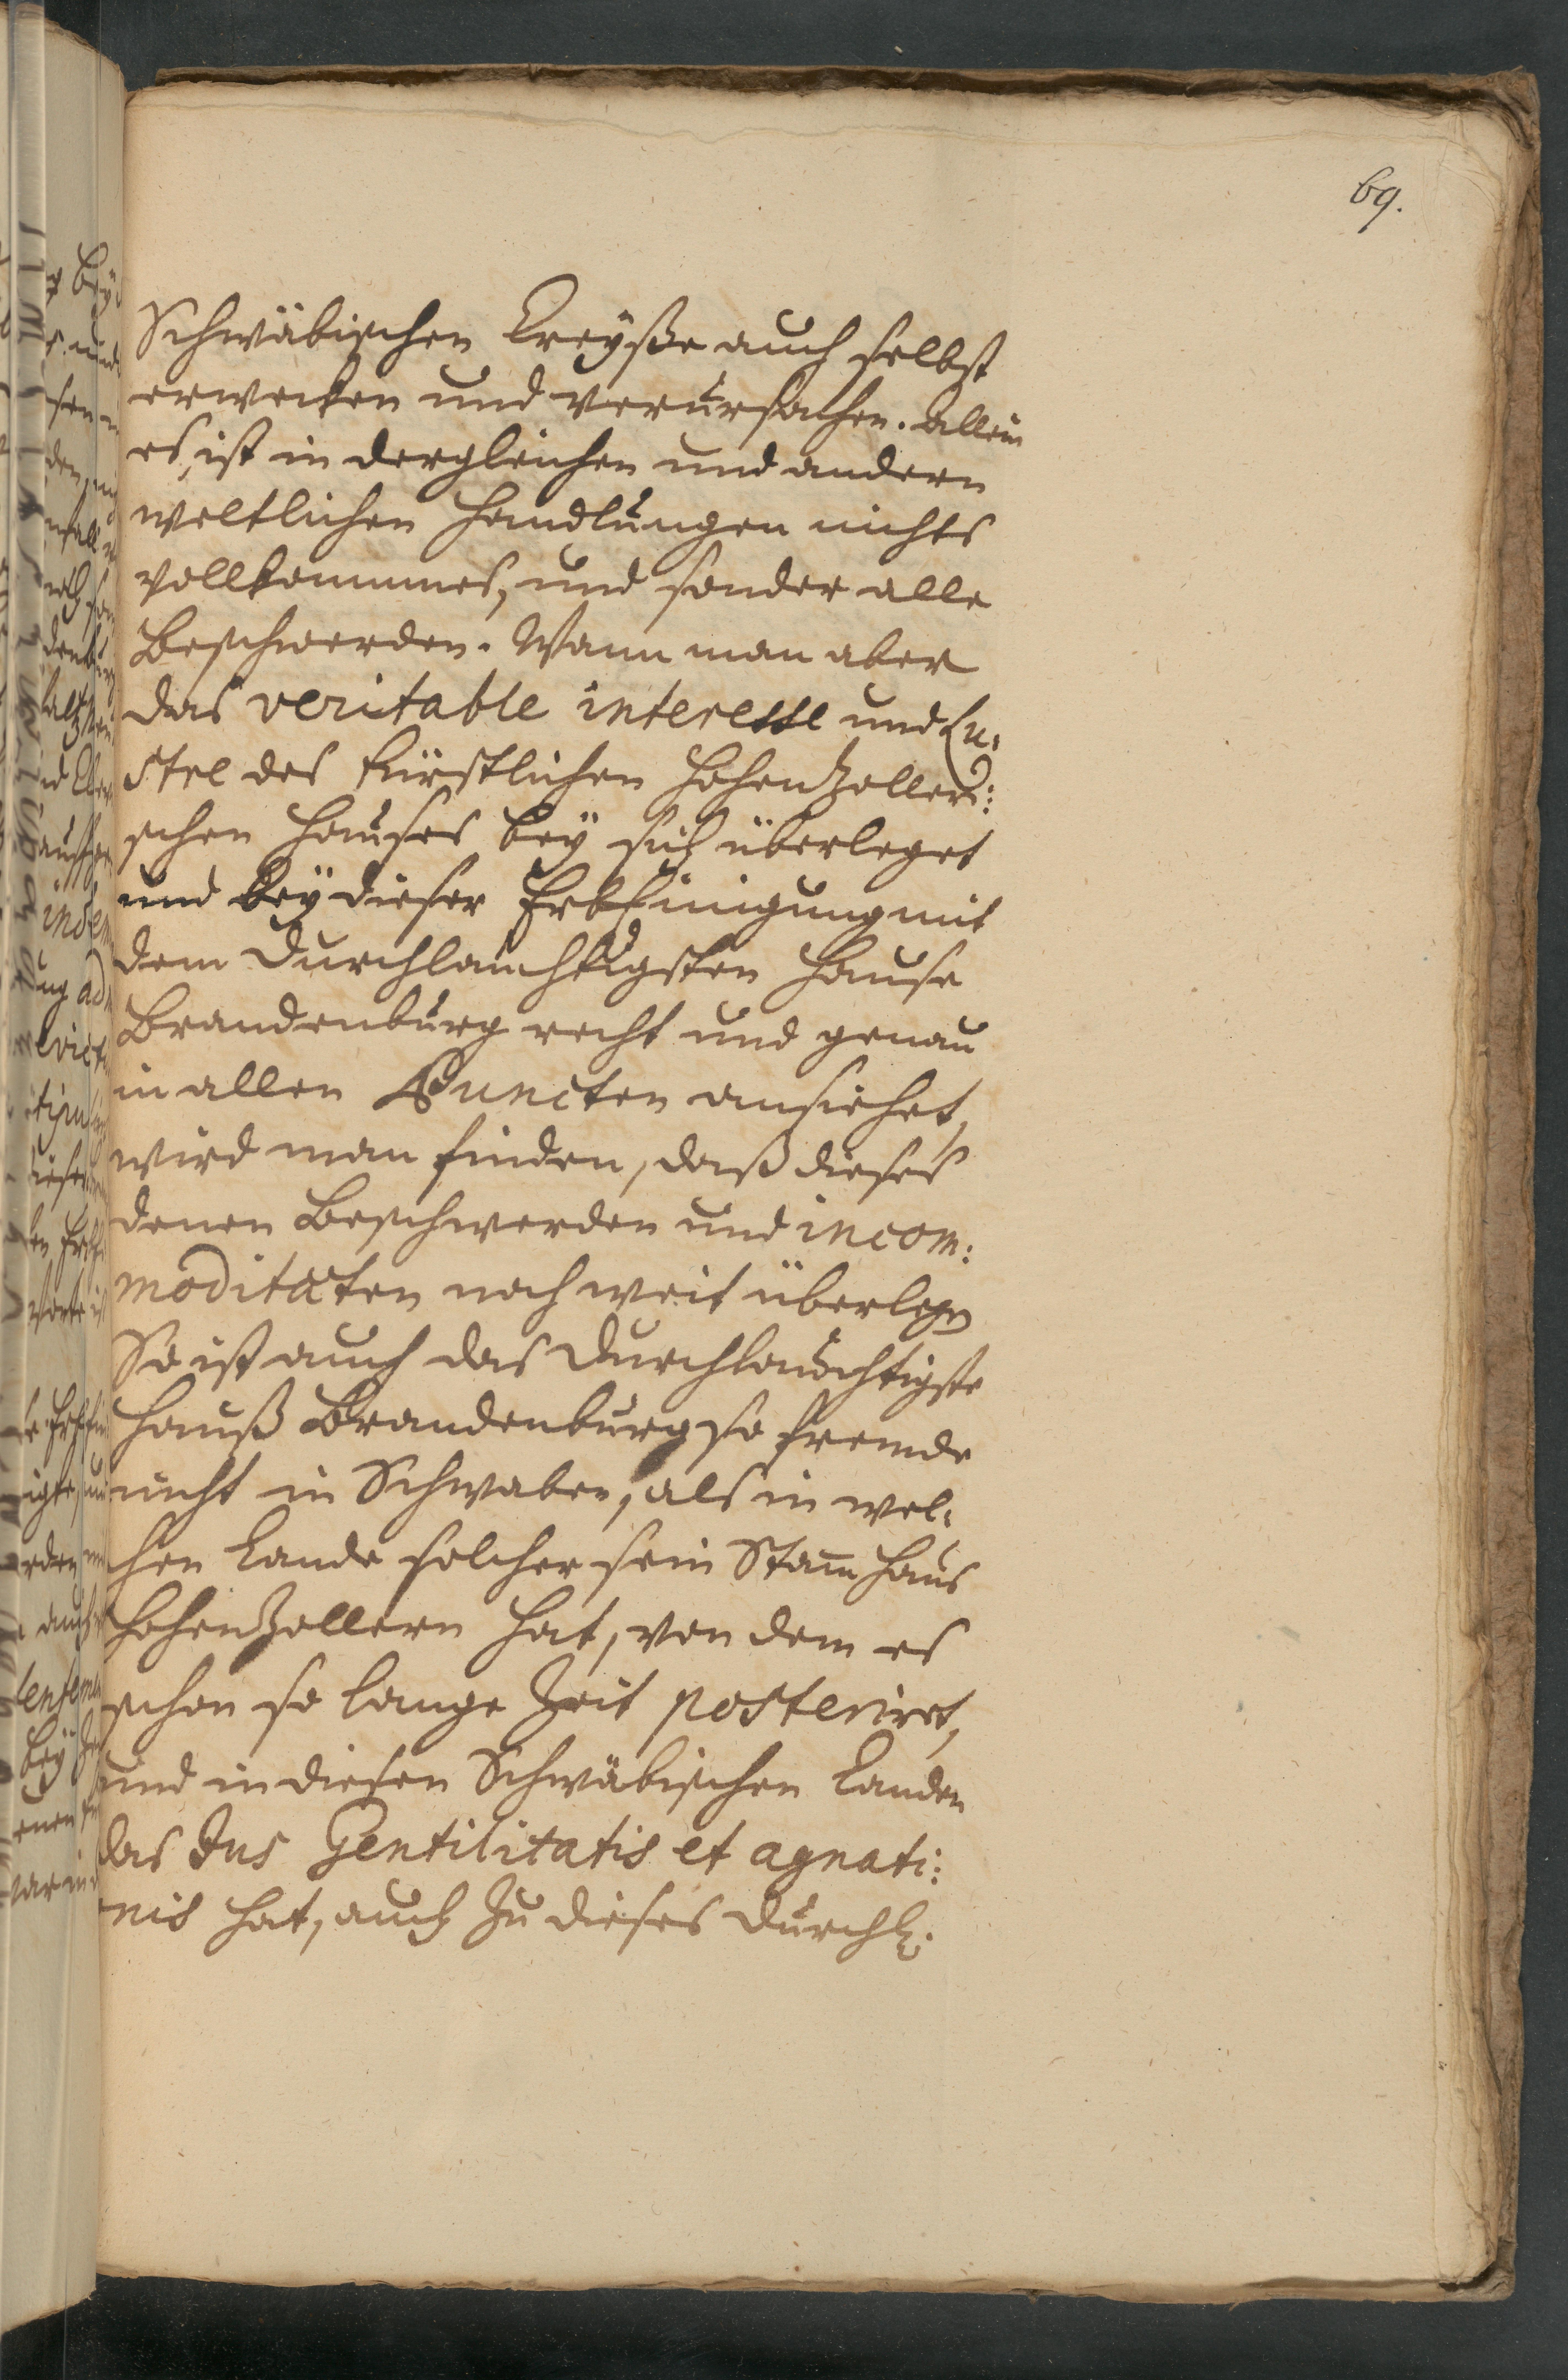 69.
Schwäbischen Creyße auch selbst
erwecken und verursachen. Allein
es, ist in dergleichen und andern
weltlichen Handlungen nichts
vollkommnes, und sonder alle
Beschwerden. Wann man aber
das veritable interesse und Lu-
stre des fürstlichen HohenZolleri:
schen Hauses bey sich überleget
und bey dieser ErbEinigung mit
dem Durchlauchtigsten Hause
Brandenburg recht und genau
in allen Puncten ansiehet,
wird man finden, daß dieses
denen Beschwerden und incom:
moditäten noch weit überlegen
So ist auch das Durchlauchtigste
Hauß Brandenburg so fremde
nicht in Schwaben, als in wel-
chen Lande solches sein Stam̄ Haus
HohenZollern hat, von dem es
schon so lange Zeit posteriret,
und in diesen Schwäbischen Landen
das Jus Gentilitatis et agnati:
nis hat, auch zu dieses Durchl.